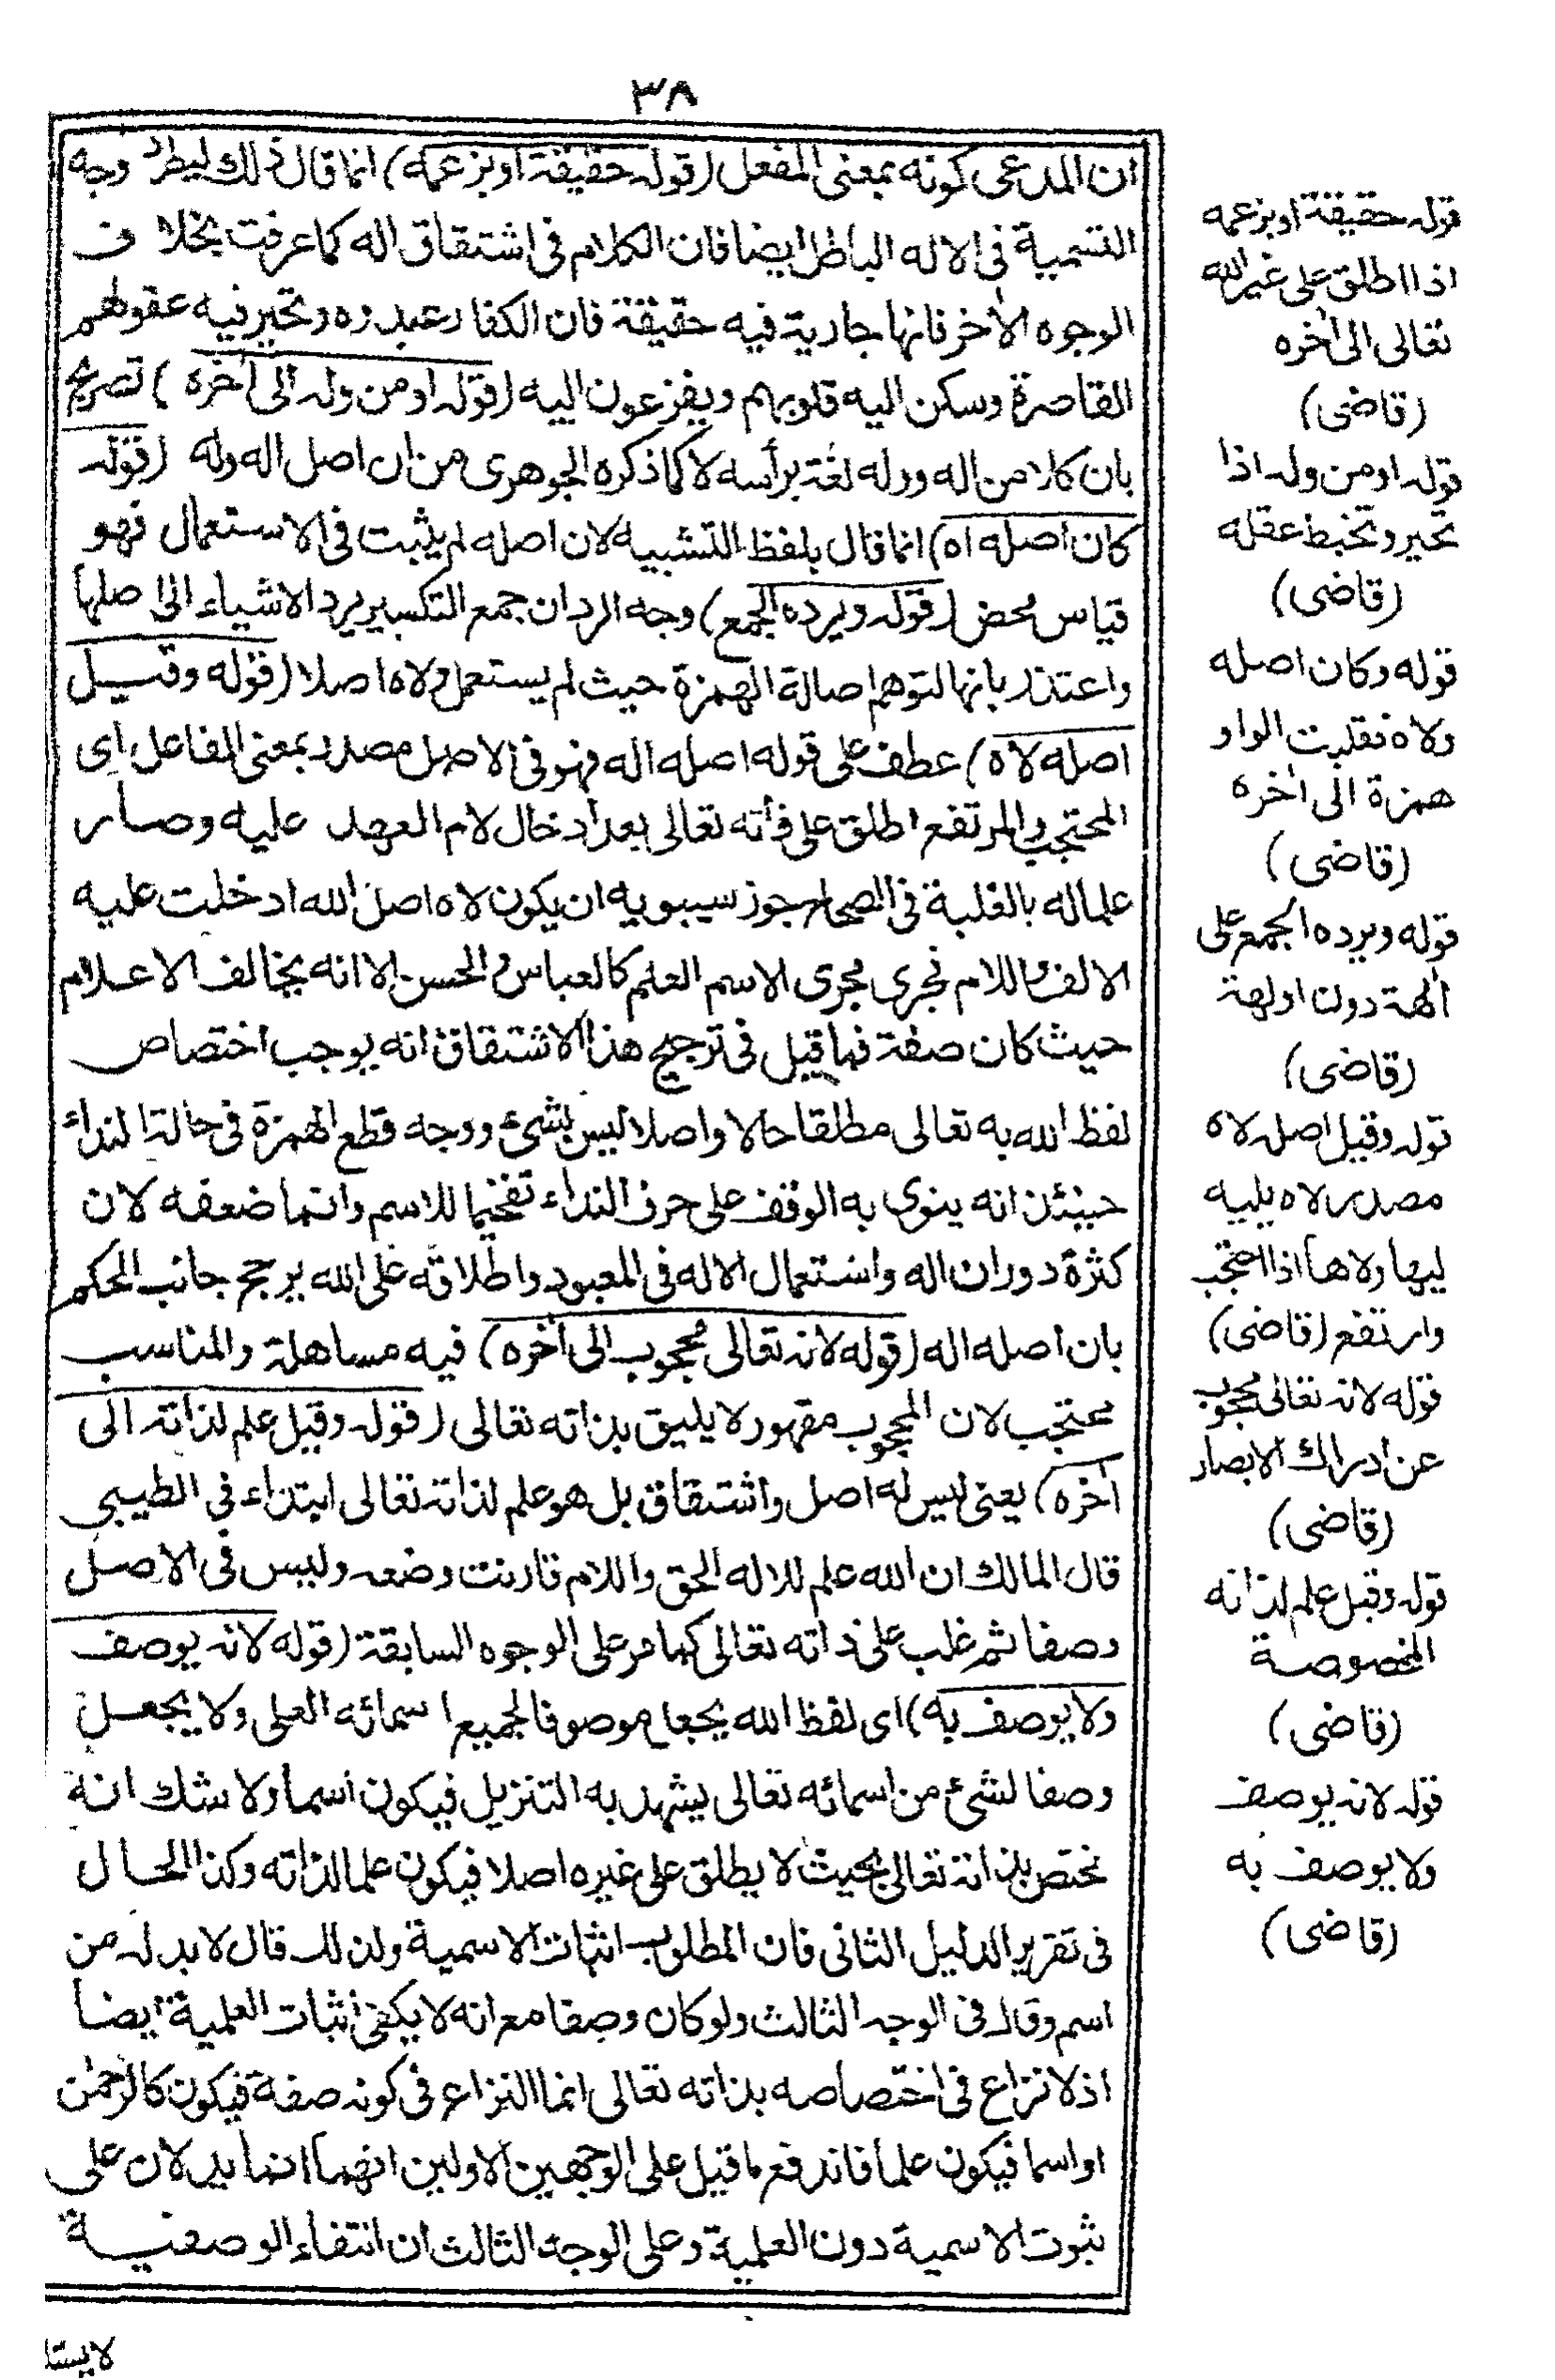 ٣٨
ان المدعى كونه بمعنى المفعل (قوله حقيقة او بزعمه) انما قال ذلك ليطرد وجه
التسمية فى الاله الباطل ايضا فان الكلام فى اشتقاق اله كما عرفت بخلاف
الوجوه الأخر فانها جارية فيه حقيقة فان الكفار عبدوه وتحير فيه عقولهم
القاصرة وسكن اليه قلوبهم ويفزعون اليه (قوله او من وله الى آخره) تصريح
بان كلا من اله ووله لغة برأسه لا كما ذكره الجوهرى من ان اصل اله وله (قوله
كان اصله اه) انما قال بلفظ التشبيه لان اصله لم يثبت فى الاستعمال فهو
قياس محض (قوله ويرده الجمع) وجه الرد ان جمع التكسير يرد الاشياء الى اصلها
واعتذر بانها لتوهم اصالة الهمزة حيث لم يستعمل ولاه اصلا (قوله وقيل
اصله لاه) عطف على قوله اصله اله فهو فى الاصل مصدر بمعنى الفاعل اى
المحتجب والمرتفع اطلق على ذاته تعالى بعد ادخال لام العهد عليه وصار
علما له بالغلبة فى الصحاح جوز سيبويه ان يكون لاه اصل الله ادخلت عليه
الالف واللام فجرى مجرى الاسم العلم كالعباس والحسن الا انه يخالف الاعلام
حيث كان صفة فما قيل فى ترجيح هذا الاشتقاق انه يوجب اختصاص
لفظ الله به تعالى مطلقا حالا واصلا ليس بشئ ووجه قطع الهمزة فى حالة النداء
حينئذ انه ينوى به الوقف على حرف النداء تفخيما للاسم وانما ضعفه لان
كثرة دوران اله واستعمال الاله فى المعبود واطلاقه على الله يرجح جانب الحكم
بان اصله اله (قوله لانه تعالى محجوب الى آخره) فيه مساهلة والمناسب
محتجب لان المحجوب مقهور لا يليق بذاته تعالى (قوله وقيل علم لذاته الى
آخره) يعنى ليس له اصل واشتقاق بل هو علم لذاته تعالى ابتداء فى الطيبى
قال المالك ان الله علم للاله الحق واللام قارنت وضعه وليس فى الاصل
وصفا ثم غلب على ذاته تعالى كما مر على الوجوه السابقة (قوله لانه يوصف
ولا يوصف به) اى لفظ الله يجعل موصوفا لجميع اسمائه العلى ولا يجعل
وصفا لشئ من اسمائه تعالى يشهد به التنزيل فيكون اسما ولا شك انه
نختص بذاته تعالى بحيث لا يطلق على غيره اصلا فيكون علما لذاته وكذا الحال
فى تقرير الدليل الثانى فان المطلوب اثبات الاسمية ولذلك قال لا بد له من
اسم وقال فى الوجه الثالث ولو كان وصفا مع انه لا يكفى اثبات العلمية ايضا
اذ لا نزاع فى اختصاصه بذاته تعالى انما النزاع فى كونه صفة فيكون كالرحمن
او اسما فيكون علما فاندفع ما قيل على الوجهين الاولين انهما انما يدلان على
ثبوت الاسمية دون العلمية وعلى الوجه الثالث ان انتفاء الوصفية
قوله حقيقة او بزعمه
اذا اطلق على غير الله
تعالى الى آخره
(قاضى)
قوله او من وله اذا
تحير وتخبط عقله
(قاضى)
قوله وكان اصله
ولاه فقلبت الواو
همزة الى آخره
(قاضى)
قوله ويرده الجمع على
آلهة دون اولهة
(قاضى)
قوله وقيل اصله لاه
مصدر لاه يليه
ليها ولاها اذا احتجب
وارتفع (قاضى)
قوله لانه تعالى محجوب
عن ادراك الابصار
(قاضى)
قوله وقيل علم لذاته
المخصوصة
(قاضى)
قوله لانه يوصف
ولا يوصف به
(قاضى)